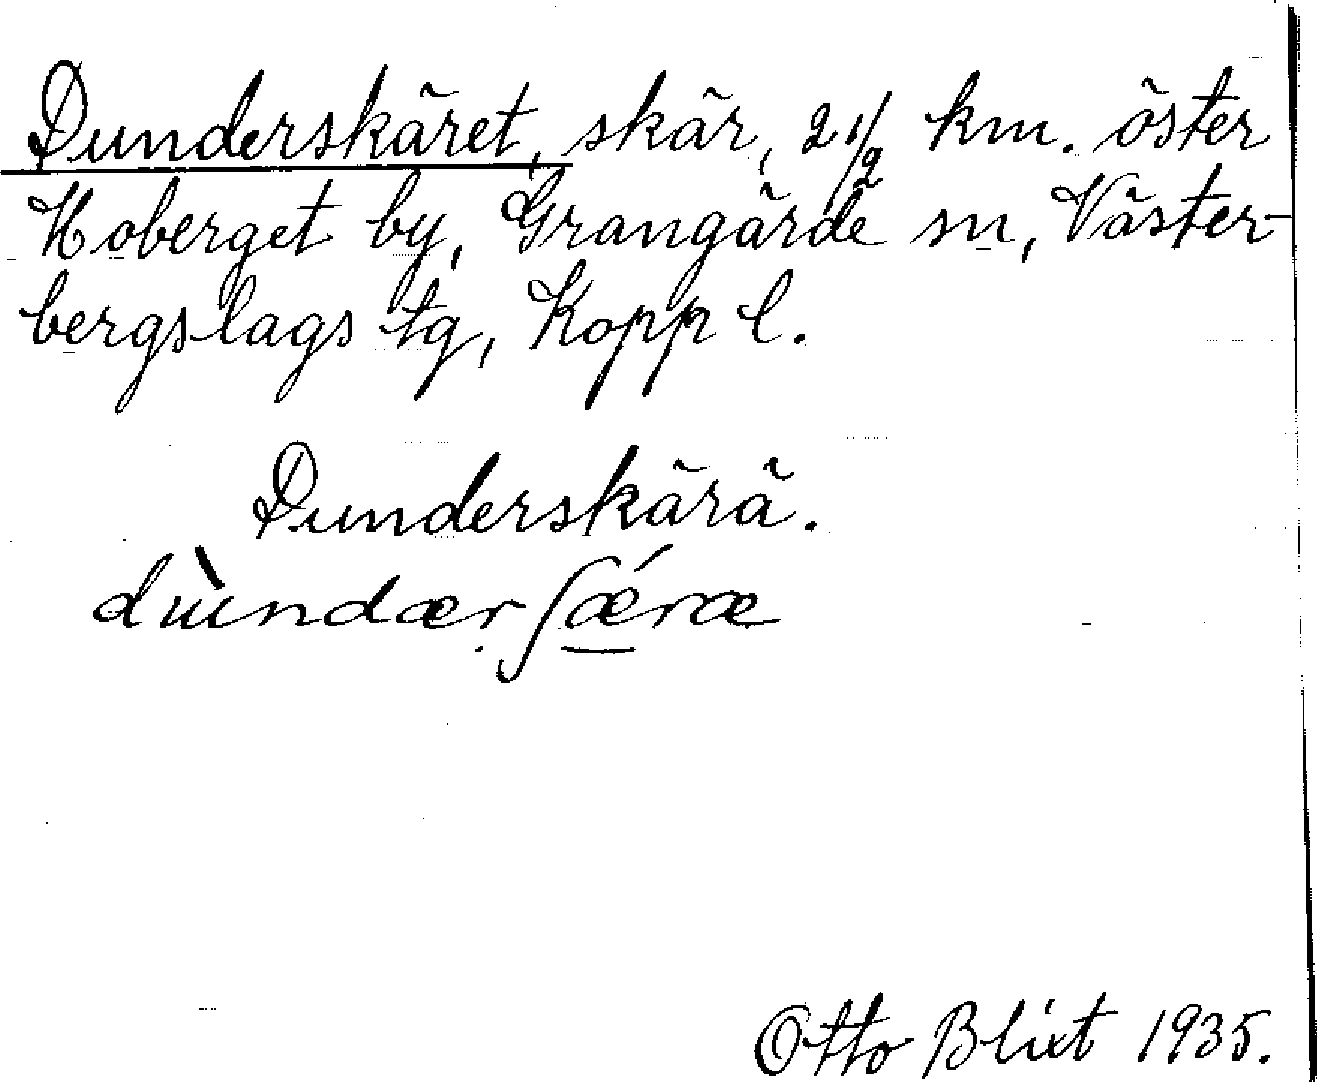 Dunderskäret, skär, 2 1/2 km. öster
Hoberget by, Grangärde sn, Väster-
bergslags tg, Kopp l.
Dunderskärä.
dùndær ʃǽræ
Otto Blixt 1935.